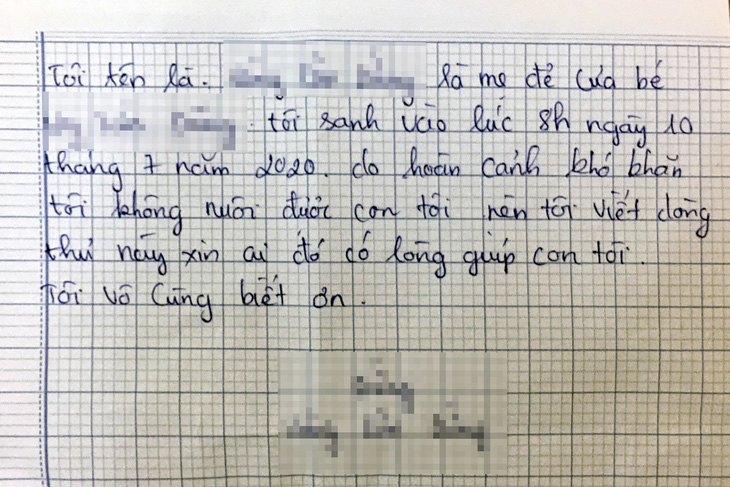 Tôi tên là. là mẹ đẻ của bé
tôi sanh vào lúc 8h ngày 10
tháng 7 năm 2020. do hoàn cảnh khó khăn
tôi không nuôi được con tôi nên tôi viết dòng
thư này xin ai đó có lòng giúp con tôi.
Tôi vô cùng biết ơn.